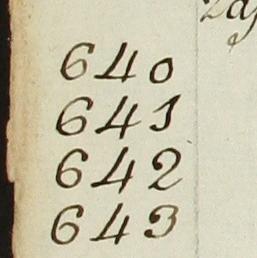 640
641
642
643